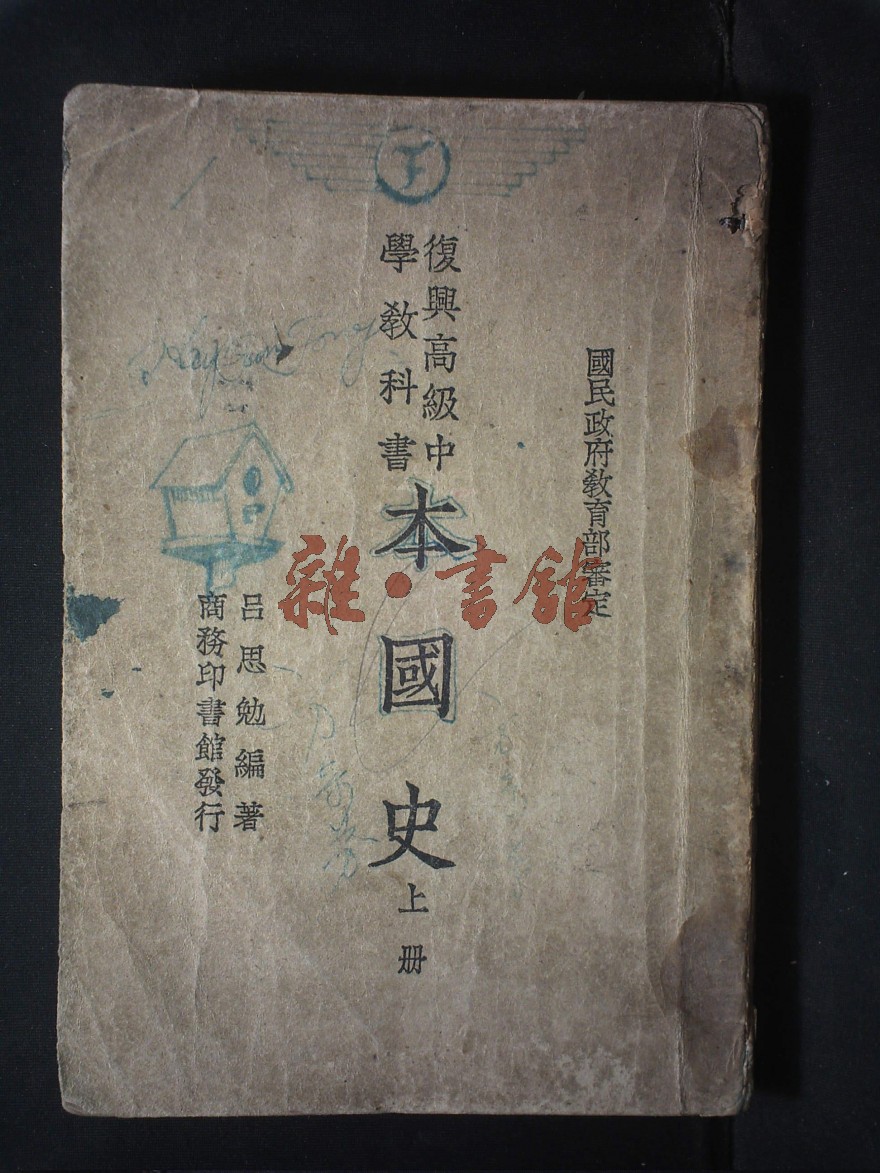 國民政府教育部審定
復興高級中
學教科書
本國史
上册
呂思勉編著
商務印書館發行
雜·書館